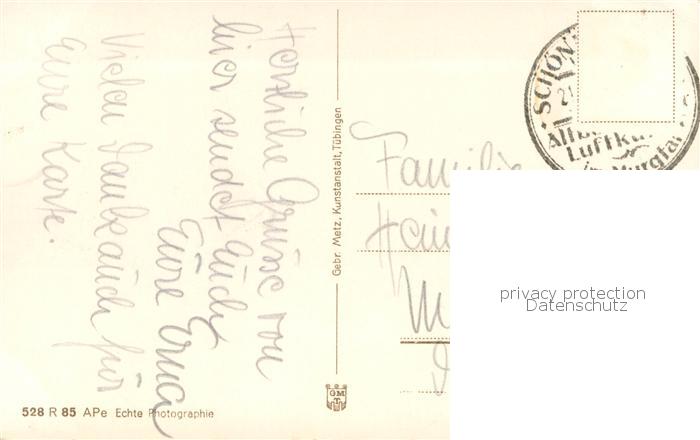 Herzliche Grüsse von
hier sendet Euch
Eure Erna
Vielen Dank auch für
Eure Karte.
Gebr. Metz, Kunstanstalt, Tübingen
Familie
528 R 85 APe Echte Photographie
GM
T
SCHÖN
21
Luftku
Murgtal
privacy protection
Datenschutz